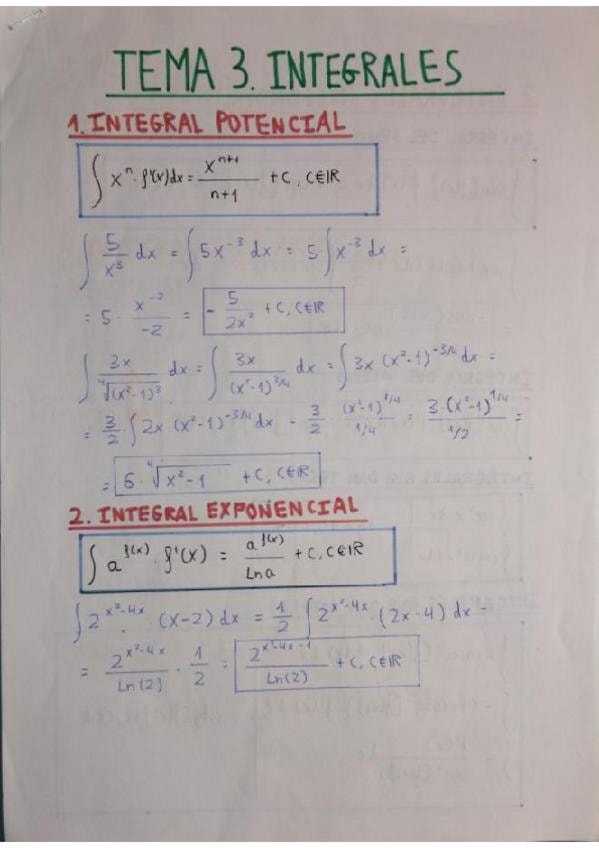 TEMA 3. INTEGRALES
1. INTEGRAL POTENCIAL
∫ xⁿ · f'(x) dx = xⁿ⁺¹/(n+1) + C, C∈ℝ
∫ 5/x³ dx = ∫ 5x⁻³ dx = 5 · ∫ x⁻³ dx =
= 5 · x⁻²/-2 = - 5/2x² + C, C∈ℝ
∫ 3x/⁴√(x²-1)³ dx = ∫ 3x/(x²-1)^3/4 dx = ∫ 3x (x²-1)^-3/4 dx =
= 3/2 · ∫ 2x · (x²-1)^-3/4 dx = 3/2 · (x²-1)^1/4 / 1/4 = 3·(x²-1)^1/4 / 1/2 =
= 6 · ⁴√(x²-1) + C, C∈ℝ
2. INTEGRAL EXPONENCIAL
∫ a^f(x) · f'(x) = a^f(x)/Ln a + C, C∈ℝ
∫ 2^x²-4x · (x-2) dx = 1/2 · ∫ 2^x²-4x · (2x-4) dx =
= 2^x²-4x/Ln(2) · 1/2 = 2^x²-4x-1/Ln(2) + C, C∈ℝ